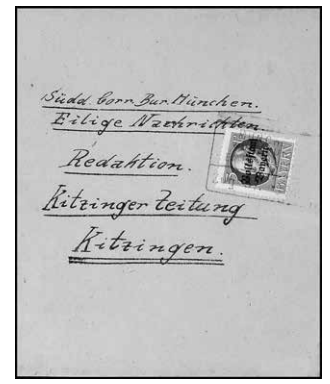 Südd. Corr. Bur. München.
Eilige Nachrichten
Redaktion.
Kitzinger Zeitung
Kitzingen.